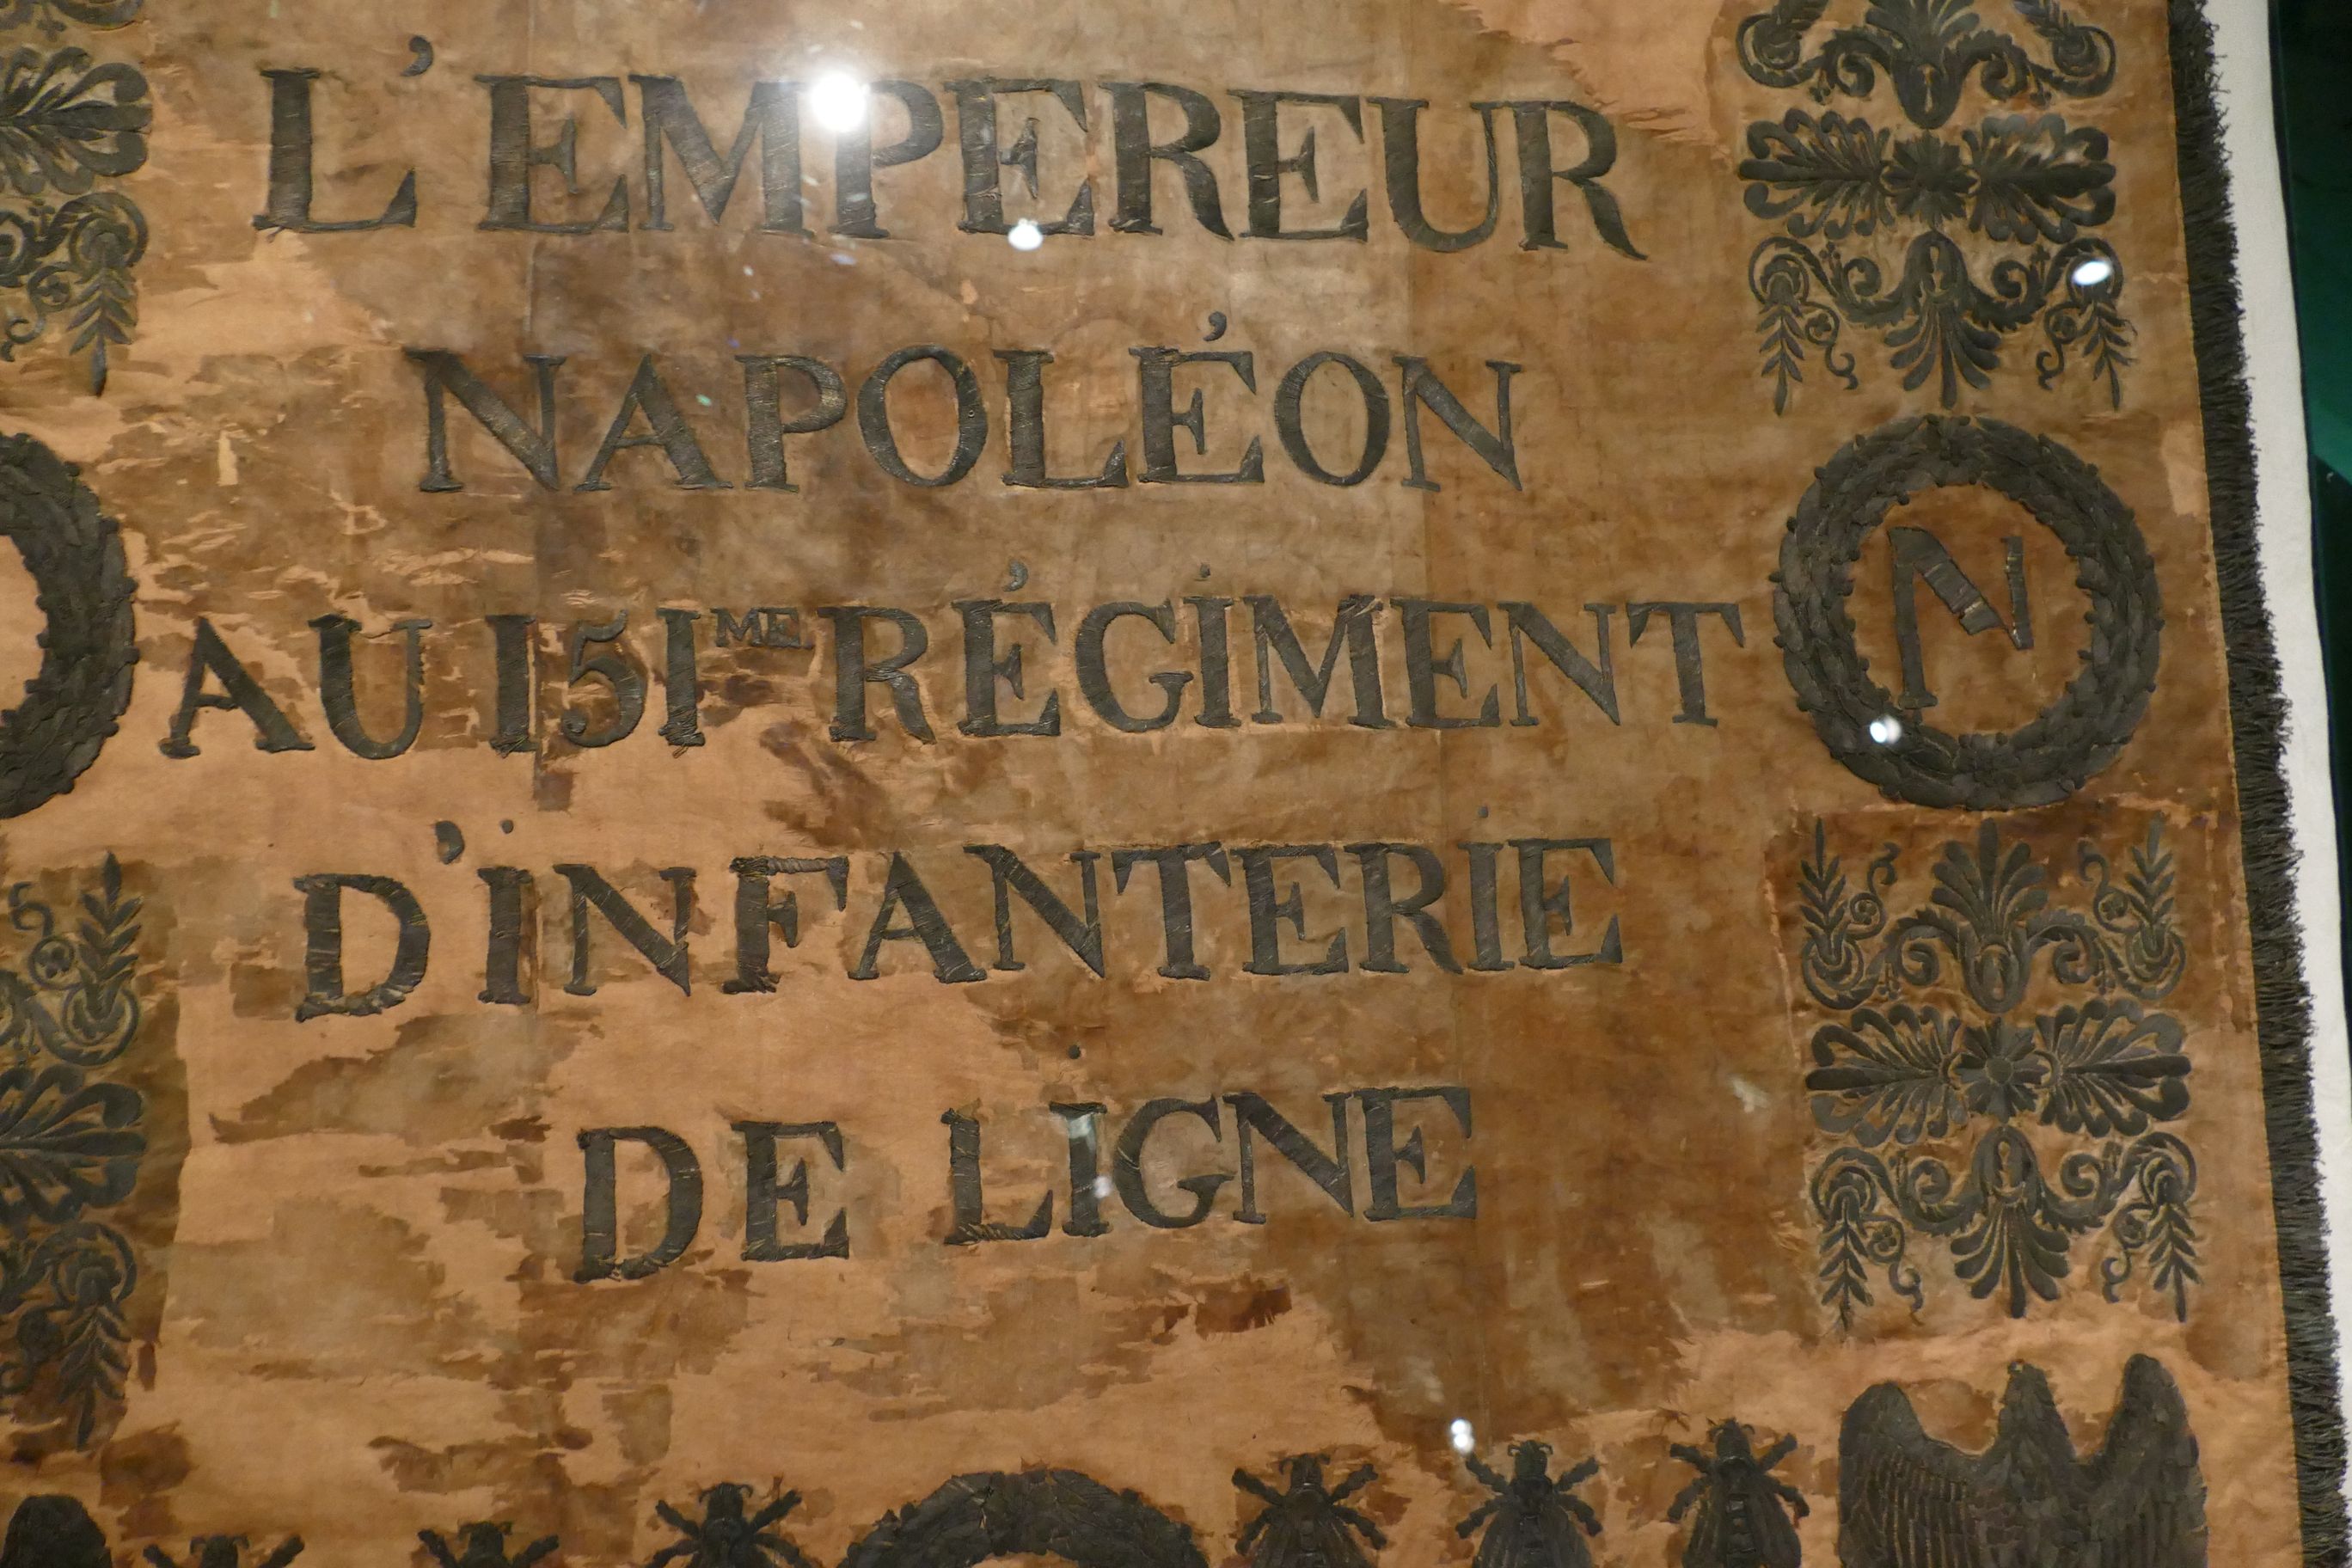 L'EMPEREUR
NAPOLÉON
AU 151ME RÉGIMENT
N
D'INFANTERIE
DE LIGNE